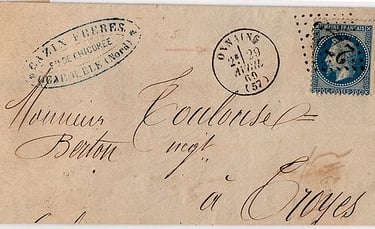 CAZIN FRERES
DE CHICORÉE
(Nord)
ONNAING
2E 29
AVRIL
69
(57)
EMPIRE FRANÇAIS
2
Monsieur Toulouse
Berton
à Troyes